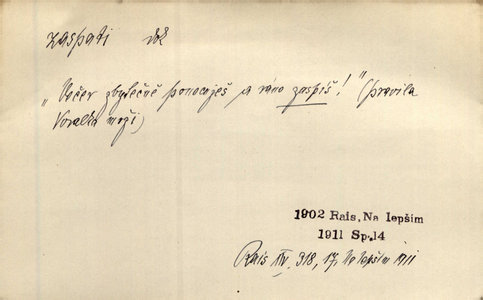 zaspati dok
„Večer zbytečně ponocuješ a ráno zaspíš!" (pravila
Voralka muži)
1902 Rais, Na lepším
1911 Sp.14
Rais XIV, 318, 17, Na lepším 1911